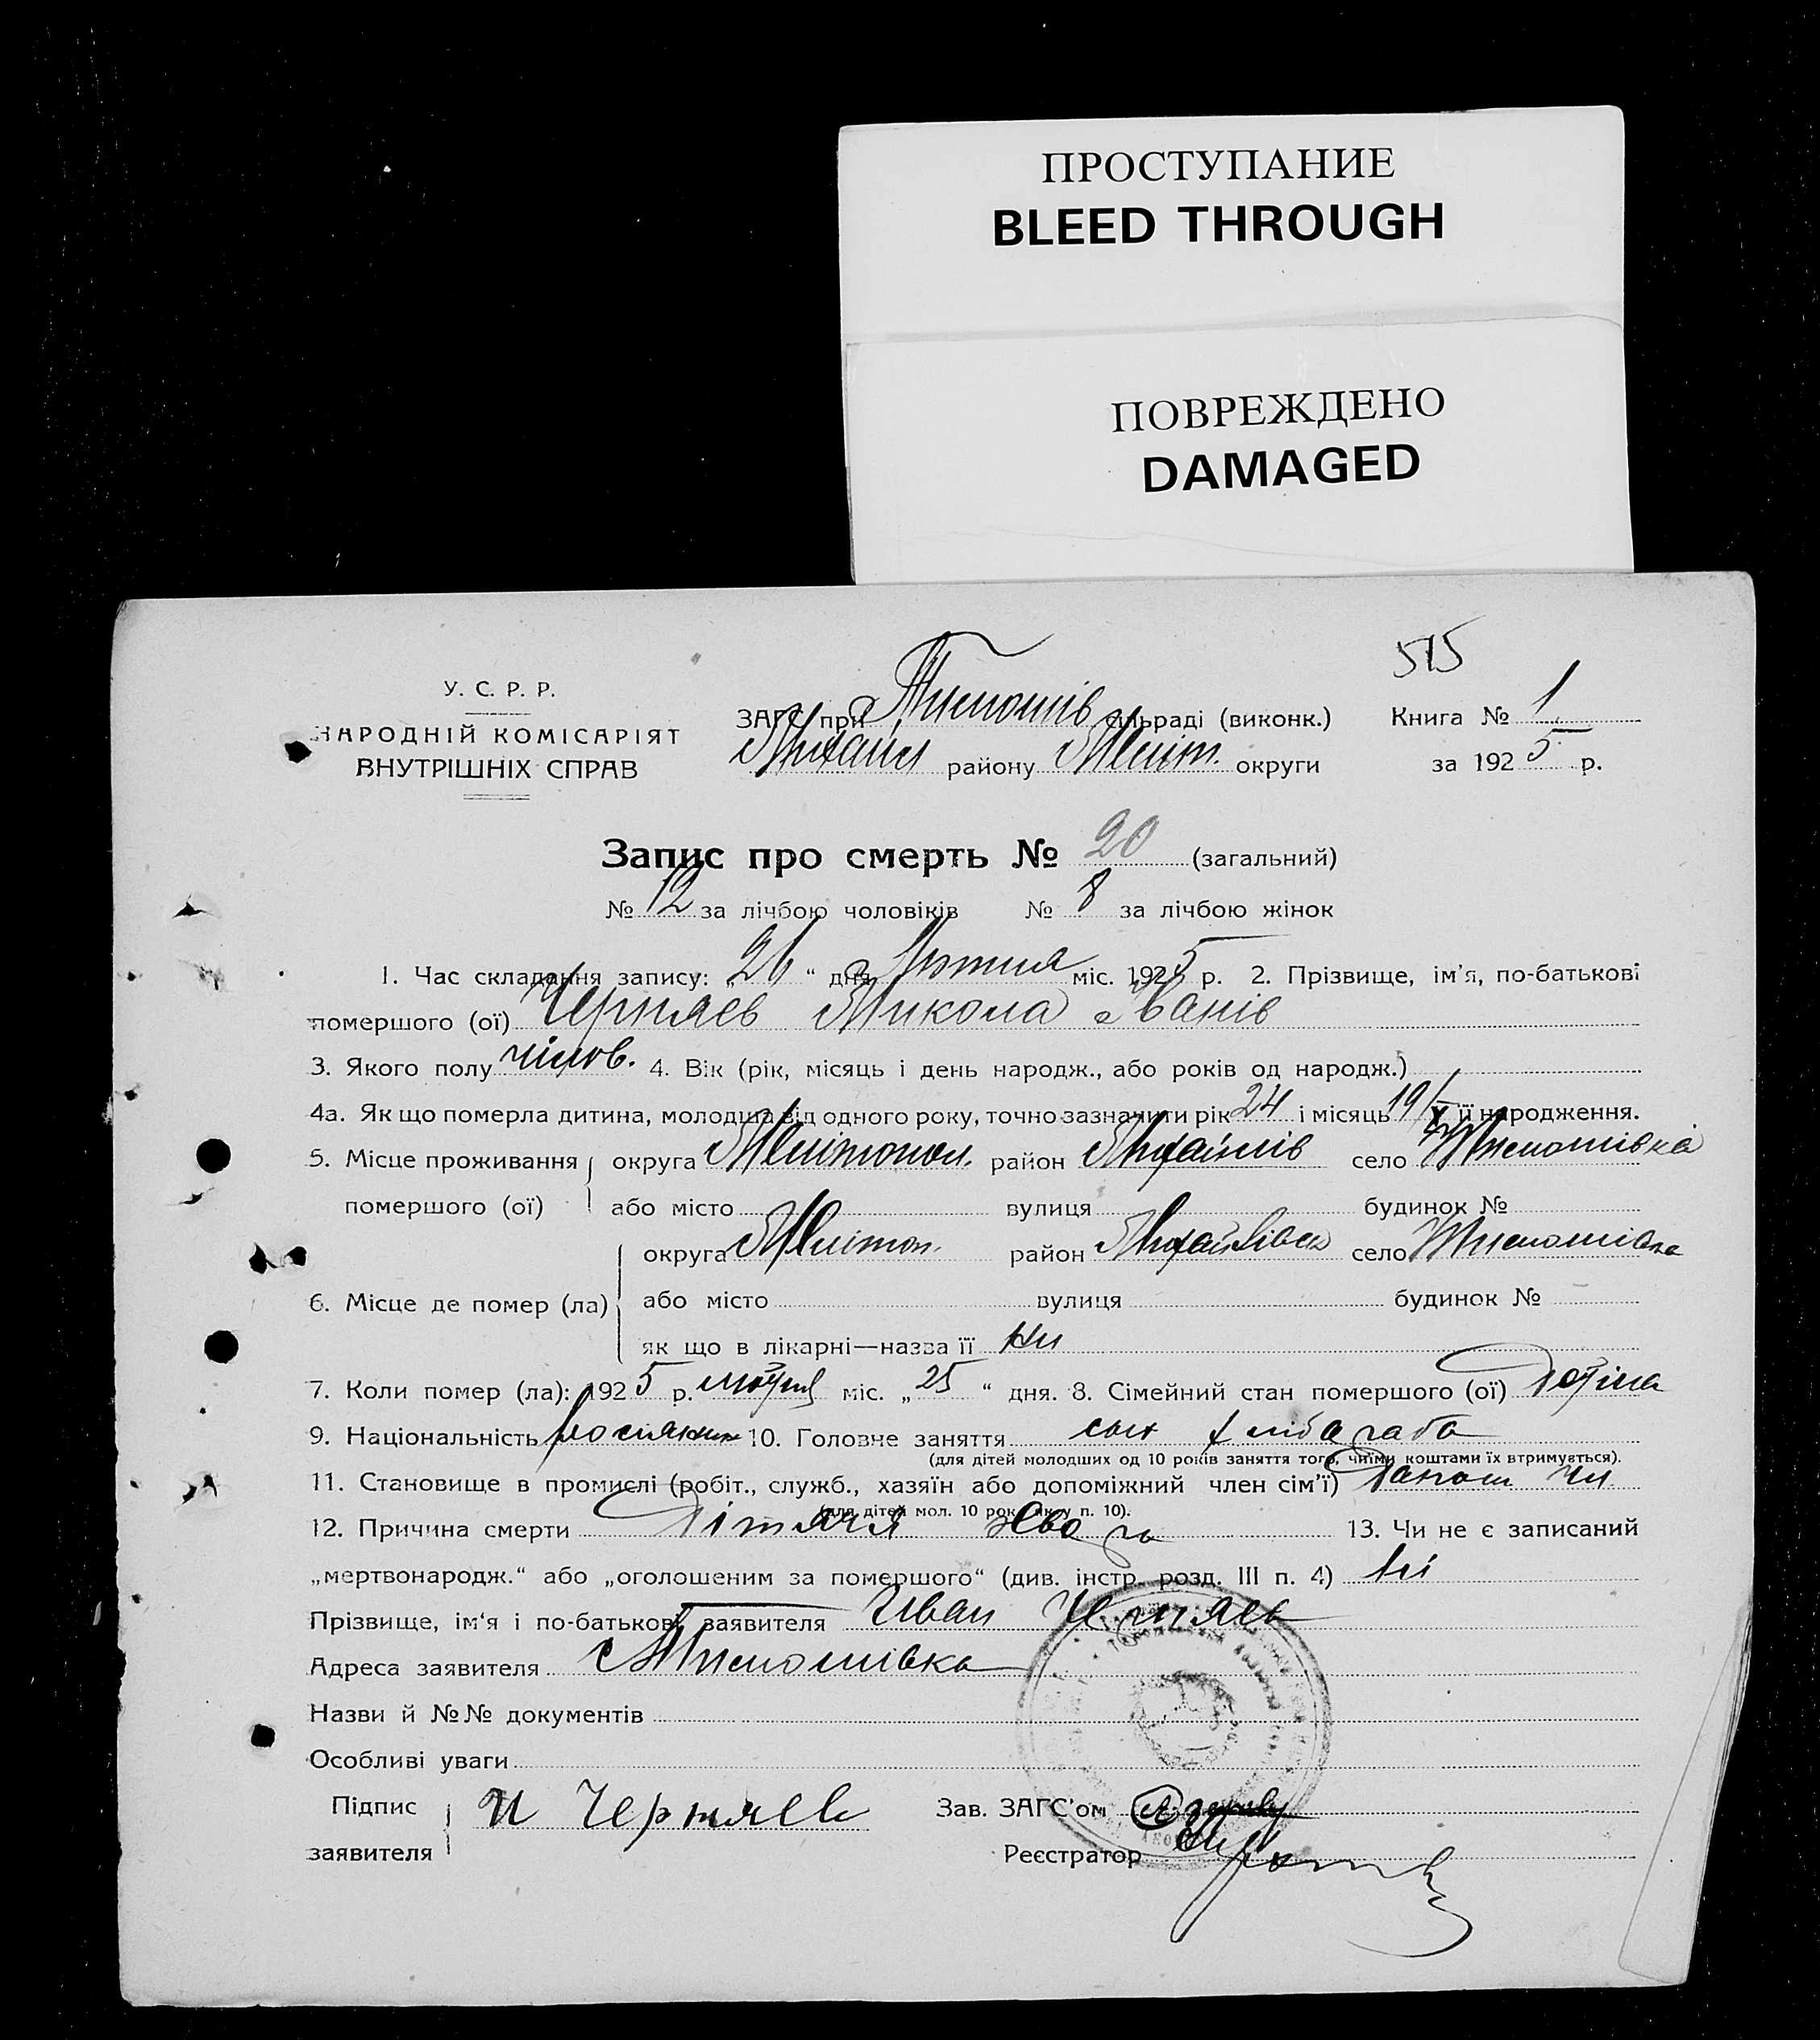 ПРОСТУПАНИЕ
BLEED THROUGH
ПОВРЕЖДЕНО
DAMAGED
515
У. С. Р. Р.
НАРОДНІЙ КОМІСАРІЯТ
ВНУТРІШНІХ СПРАВ
ЗАГС при Тимошів сільраді (виконк.) Книга № 1
Михайл району Меліт. округи за 1925 р.
Запис про смерть № 20 (загальний)
№ 12 за лічбою чоловіків № 8 за лічбою жінок
1. Час складання запису: „26“ дня Лютня міс. 1925 р. 2. Прізвище, ім'я, по-батькові
помершого (ої) Черняев Микола Іванів
3. Якого полу чолов. 4. Вік (рік, місяць і день народж., або років од народж.)
4а. Як що померла дитина, молодша від одного року, точно зазначити рік 24 і місяць 19/X її народження.
5. Місце проживання округа Мелітопол. район Михайлів село Тимошівка
помершого (ої) або місто вулиця будинок №
округа Мелітоп. район Михайлівск село Тимошівка
6. Місце де помер (ла) або місто вулиця будинок №
як що в лікарні—назва її ни
7. Коли помер (ла): 1925 р. лютня міс. „25“ дня. 8. Сімейний стан помершого (ої)
9. Національність росиянин 10. Головне заняття сын хлібороба
(для дітей молодших од 10 років заняття того, чиїми коштами їх втримується).
11. Становище в промислі (робіт., служб., хазяїн або допоміжний член сім'ї) чл.
(для дітей мол. 10 рок. як у п. 10).
12. Причина смерти Дітяча 13. Чи не є записаний
„мертвонародж.“ або „оголошеним за помершого“ (див. інстр. розд. III п. 4) ні
Прізвище, ім'я і по-батькові заявителя Иван Черняев
Адреса заявителя с Тимошівка
Назви й №№ документів
Особливі уваги
Підпис И Черняев Зав. ЗАГС'ом
заявителя Реєстратор